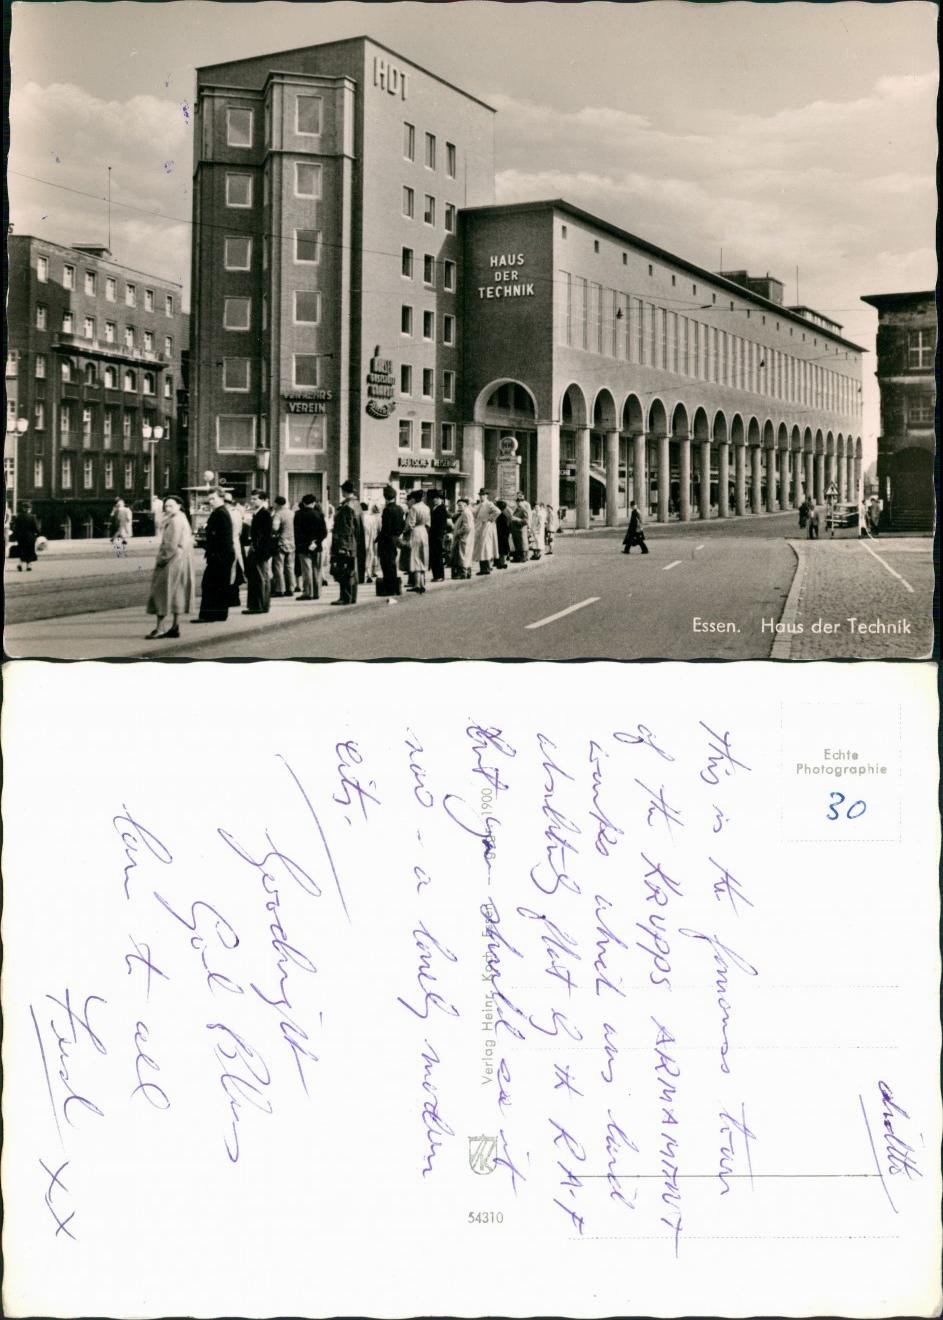 HDT
HAUS
DER
TECHNIK
VERKEHRS
VEREIN
Essen. Haus der Technik
Echte
Photographie
30
ditto
This is the famous town
of the KRUPPS ARMAMENT
works which was laid
absolutely flat by the R.A.F
But you should see it
now - a lovely modern
city.
Goodnight
God Bless
love to all
Fred X X
Verlag Heinr. Koch, Essen 1900
54310